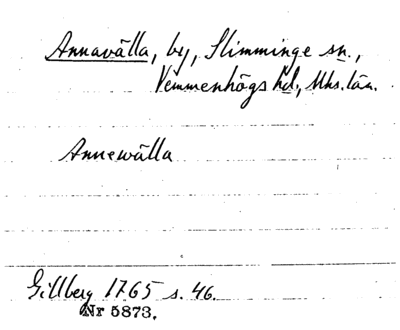 Annavälla, by, Slimminge sn.,
Vemmenhögs hd., Mhs. län.
Annewälla
Gillberg 1765 s. 46.
Nr 5873.